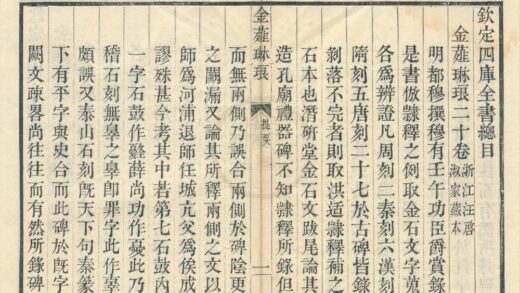 欽定四庫全書總目
金薤琳琅二十卷
浙江汪啓
淑家藏本
明都穆撰穆有壬午功臣爵賞錄
是書倣隸釋之例取金石文字蒐
各爲辨證凡周刻二秦刻六漢刻
隋刻五唐刻二十七於古碑皆錄
剝落不完者則取洪适隸釋補之
石本也潛硏堂金石文跋尾論其
造孔廟禮器碑不知隸釋所錄但
金薤琳琅
提要
一
而無兩側乃誤合兩側於碑陰更
之闕漏又論其所釋兩側之文以
師爲河浦退師任城亢父爲俟成
謬殊甚今考其中若第七石鼓內
一字石鼓作薛尚功作憂此乃
稽石刻無辠之辠卽罪字此作辜
頗誤又泰山石刻旣天下句秦篆
下有平字與史合而此碑於旣字
闕文疎畧尚往往而有然所錄碑